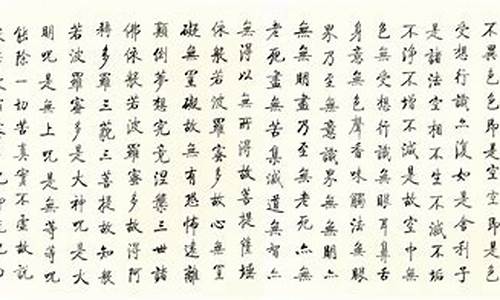 不異色色即是空空即是色
受想行識亦復如是舍利子
是諸法空相不生不滅不垢
不淨不增不減是故空中無
色無受想行識無眼耳鼻舌
身意無色聲香味觸法無眼
界乃至無意識界無無明亦
無無明盡乃至無老死亦無
老死盡無苦集滅道無智亦
無得以無所得故菩提薩埵
依般若波羅蜜多故心無罣
礙無罣礙故無有恐怖遠離
顛倒夢想究竟涅槃三世諸
佛依般若波羅蜜多故得阿
耨多羅三藐三菩提故知般
若波羅蜜多是大神咒是大
明咒是無上咒是無等等咒
能除一切苦真實不虛故說